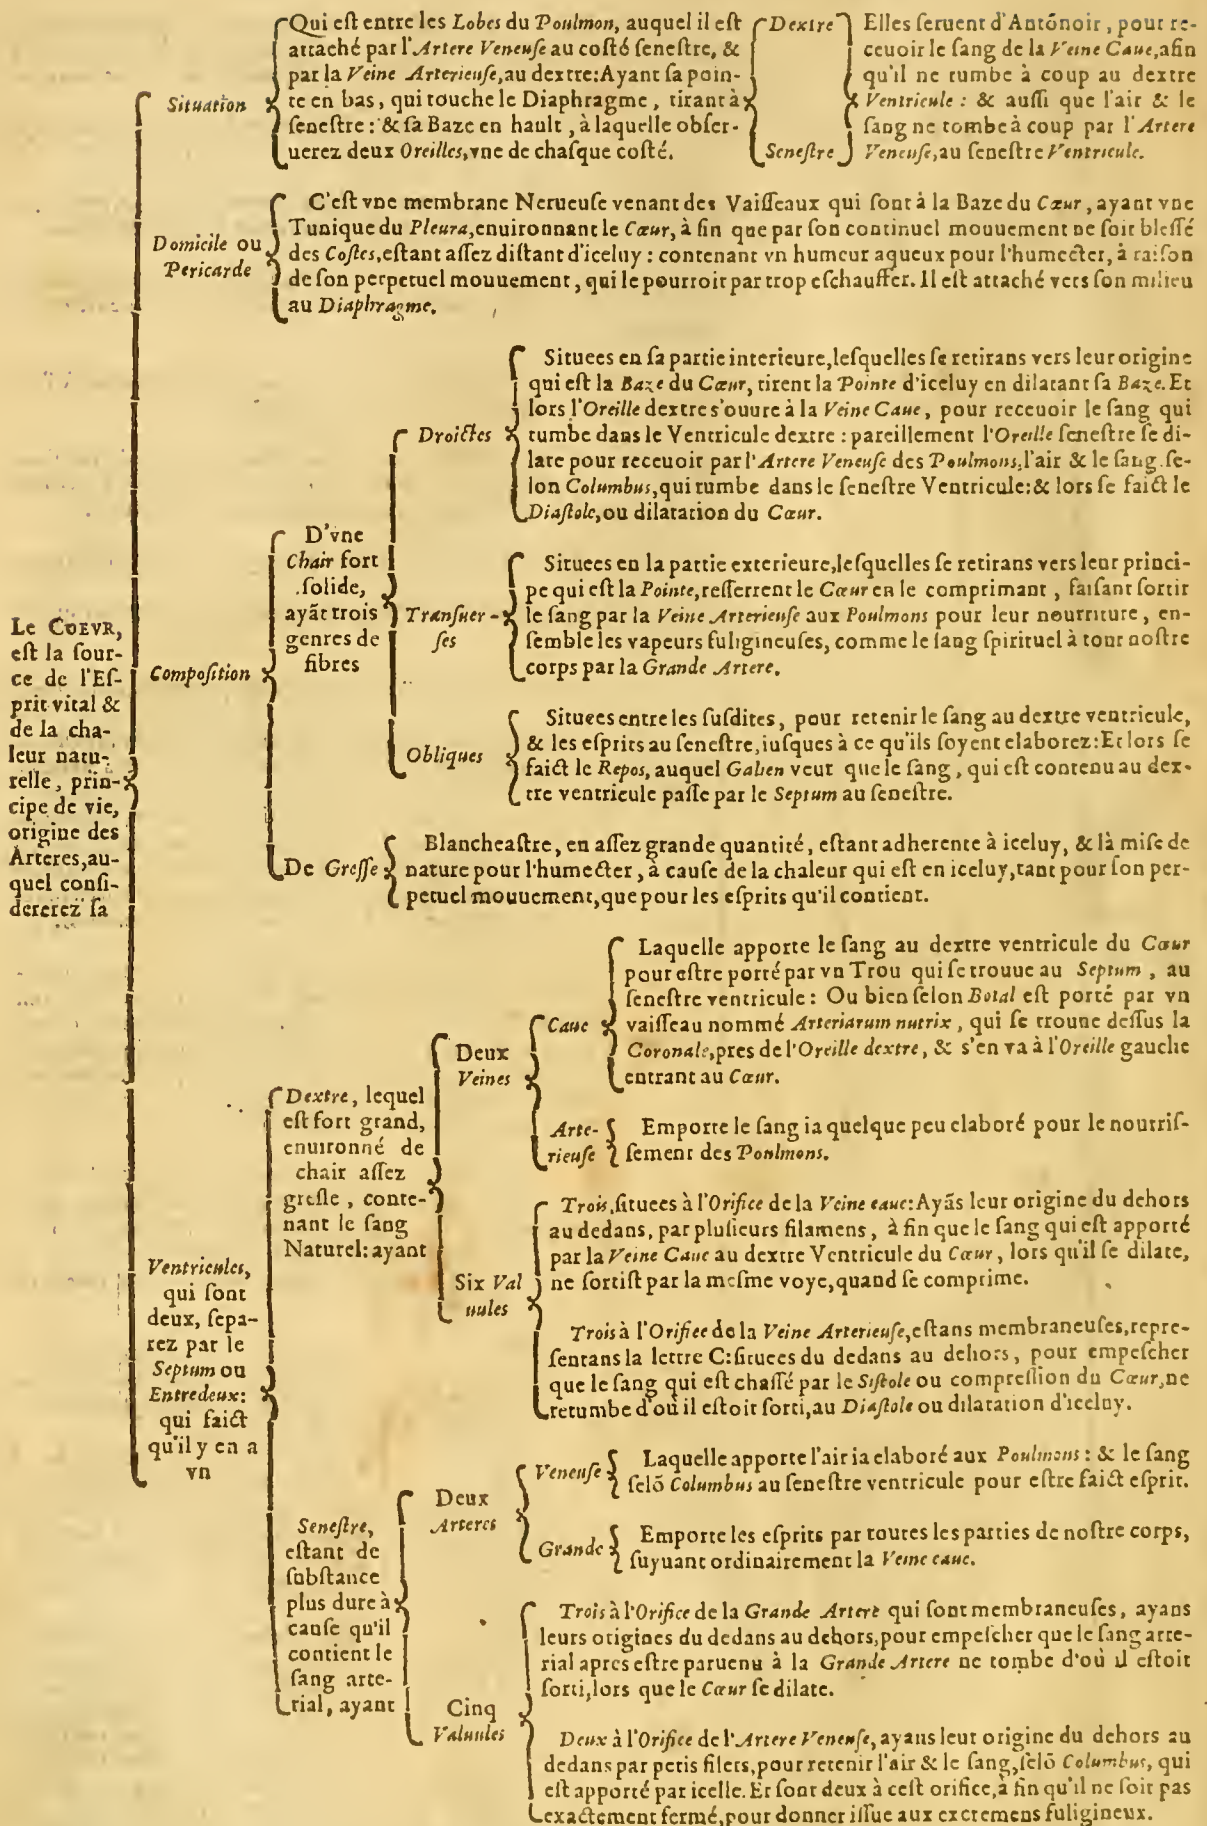 Le COEVR,
eſt la ſour-
ce de l'Eſ-
prit vital &
de la cha-
leur natu-
relle, prin-
cipe de vie,
origine des
Arteres, au-
quel conſi-
dererez ſa
Situation
Qui eſt entre les Lobes du Poulmon, auquel il eſt
attaché par l'Artere Veneuſe au coſté ſeneſtre, &
par la Veine Arterieuſe, au dextre: Ayant ſa poin-
te en bas, qui touche le Diaphragme, tirant à
ſeneſtre: & ſa Baze en hault, à laquelle obſer-
uerez deux Oreilles, vne de chaſque coſté.
Dextre
Seneſtre
Elles ſeruent d'Antónoir, pour re-
ceuoir le ſang de la Veine Caue, afin
qu'il ne tumbe à coup au dextre
Ventricule: & auſſi que l'air & le
ſang ne tombe à coup par l'Artere
Veneuſe, au ſeneſtre Ventricule.
Domicile ou
Pericarde
C'eſt vne membrane Nerueuſe venant des Vaiſſeaux qui ſont à la Baze du Cœur, ayant vne
Tunique du Pleura, enuironnant le Cœur, à fin que par ſon continuel mouuement ne ſoit bleſſé
des Coſtes, eſtant aſſez diſtant d'iceluy: contenant vn humeur aqueux pour l'humecter, à raiſon
de ſon perpetuel mouuement, qui le pourroit par trop eſchauffer. Il eſt attaché vers ſon milieu
au Diaphragme.
Compoſition
D'vne
Chair fort
ſolide,
ayãt trois
genres de
fibres
Droictes
Situees en ſa partie interieure, leſquelles ſe retirans vers leur origine
qui eſt la Baze du Cœur, tirent la Pointe d'iceluy en dilatant ſa Baze. Et
lors l'Oreille dextre s'ouure à la Veine Caue, pour receuoir le ſang qui
tumbe dans le Ventricule dextre: pareillement l'Oreille ſeneſtre ſe di-
late pour receuoir par l'Artere Veneuſe des Poulmons, l'air & le ſang ſe-
lon Columbus, qui tumbe dans le ſeneſtre Ventricule: & lors ſe faict le
Diaſtole, ou dilatation du Cœur.
Tranſuer-
ſes
Situees en la partie exterieure, leſquelles ſe retirans vers leur princi-
pe qui eſt la Pointe, reſſerrent le Cœur en le comprimant, faiſant ſortir
le ſang par la Veine Arterieuſe aux Poulmons pour leur nourriture, en-
ſemble les vapeurs fuligineuſes, comme le ſang ſpirituel à tout noſtre
corps par la Grande Artere.
Obliques
Situees entre les ſuſdites, pour retenir le ſang au dextre ventricule,
& les eſprits au ſeneſtre, iuſques à ce qu'ils ſoyent elaborez: Et lors ſe
faict le Repos, auquel Galien veut que le ſang, qui eſt contenu au dex-
tre ventricule paſſe par le Septum au ſeneſtre.
De Greſſe
Blancheaſtre, en aſſez grande quantité, eſtant adherente à iceluy, & là miſe de
nature pour l'humecter, à cauſe de la chaleur qui eſt en iceluy, tant pour ſon per-
petuel mouuement, que pour les eſprits qu'il contient.
Ventricules,
qui ſont
deux, ſepa-
rez par le
Septum ou
Entredeux:
qui faict
qu'il y en a
vn
Dextre, lequel
eſt fort grand,
enuironné de
chair aſſez
greſle, conte-
nant le ſang
Naturel: ayant
Deux
Veines
Caue
Laquelle apporte le ſang au dextre ventricule du Cœur
pour eſtre porté par vn Trou qui ſe trouue au Septum, au
ſeneſtre ventricule: Ou bien ſelon Botal eſt porté par vn
vaiſſeau nommé Arteriarum nutrix, qui ſe trouue deſſus la
Coronale, pres de l'Oreille dextre, & s'en va à l'Oreille gauche
entrant au Cœur.
Arte-
rieuſe
Emporte le ſang ia quelque peu elaboré pour le nourriſ-
ſement des Poulmons.
Six Val
uules
Trois, ſituees à l'Orifice de la Veine caue: Ayãs leur origine du dehors
au dedans, par pluſieurs filamens, à fin que le ſang qui eſt apporté
par la Veine Caue au dextre Ventricule du Cœur, lors qu'il ſe dilate,
ne ſortiſt par la meſme voye, quand ſe comprime.
Trois à l'Orifice de la Veine Arterieuſe, eſtans membraneuſes, repre-
ſentans la lettre C: ſituees du dedans au dehors, pour empeſcher
que le ſang qui eſt chaſſé par le Siſtole ou compreſſion du Cœur, ne
retumbe d'où il eſtoit ſorti, au Diaſtole ou dilatation d'iceluy.
Seneſtre,
eſtant de
ſubſtance
plus dure à
cauſe qu'il
contient le
ſang arte-
rial, ayant
Deux
Arteres
Veneuſe
Laquelle apporte l'air ia elaboré aux Poulmons: & le ſang
ſelõ Columbus au ſeneſtre ventricule pour eſtre faict eſprit.
Grande
Emporte les eſprits par toutes les parties de noſtre corps,
ſuyuant ordinairement la Veine caue.
Cinq
Valuules
Trois à l'Orifice de la Grande Artere qui ſont membraneuſes, ayans
leurs origines du dedans au dehors, pour empeſcher que le ſang arte-
rial apres eſtre paruenu à la Grande Artere ne tombe d'où il eſtoit
ſorti, lors que le Cœur ſe dilate.
Deux à l'Orifice de l'Artere Veneuſe, ayans leur origine du dehors au
dedans par petis filets, pour retenir l'air & le ſang, ſelõ Columbus, qui
eſt apporté par icelle. Et ſont deux à ceſt orifice, à fin qu'il ne ſoit pas
exactement fermé, pour donner iſſue aux excremens fuligineux.